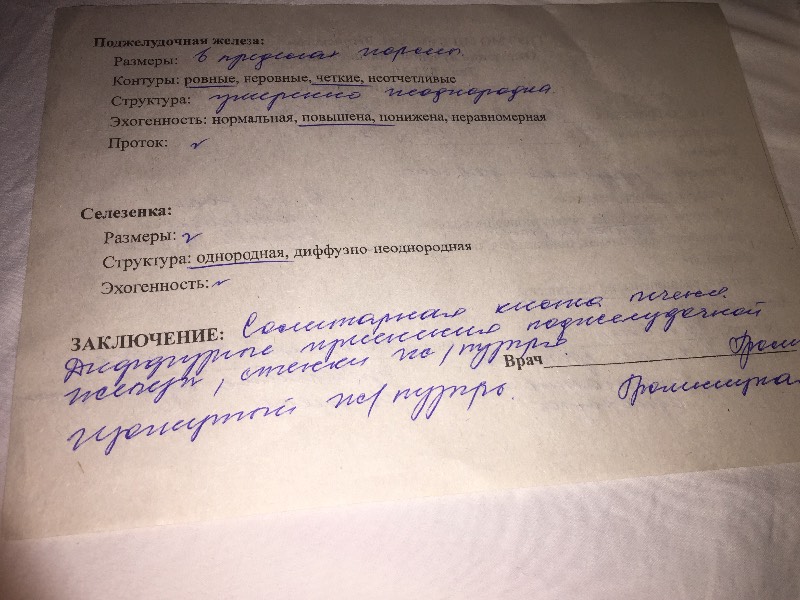 Поджелудочная железа:
Размеры: в пределах нормы
Контуры: ровные, неровные, четкие, неотчетливые
Структура: умеренно неоднородна
Эхогенность: нормальная, повышена, понижена, неравномерная
Проток: v
Селезенка:
Размеры: v
Структура: однородная, диффузно-неоднородная
Эхогенность: v
ЗАКЛЮЧЕНИЕ: Солитарная киста печени.
Диффузные изменения поджелудочной
железы, стенки ж/пузыря.
Врач
Изогнутый ж/пузырь.